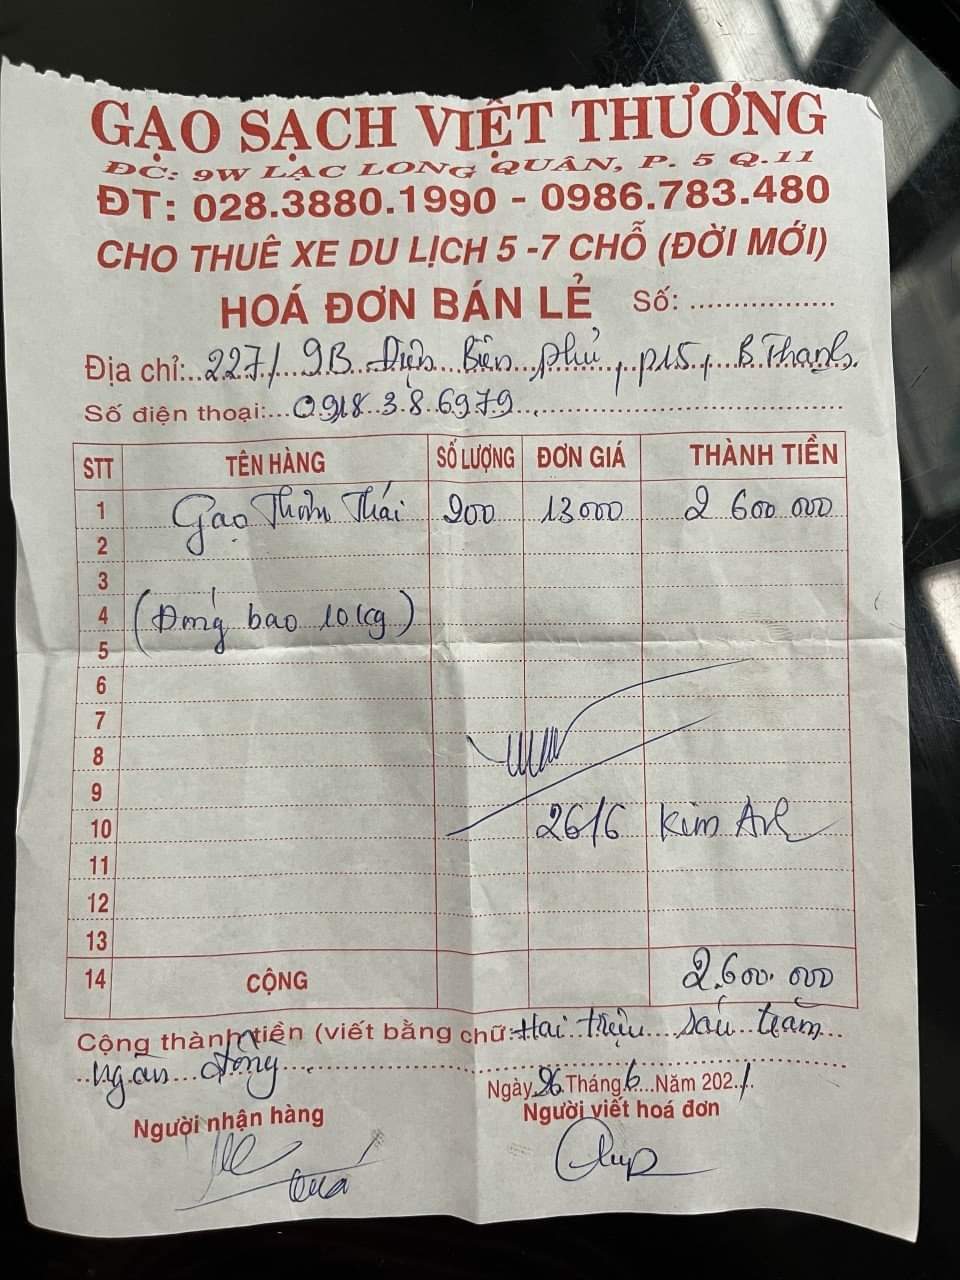 GẠO SẠCH VIỆT THƯƠNG
ĐC: 9W LẠC LONG QUÂN, P. 5 Q.11
ĐT: 028.3880.1990 - 0986.783.480
CHO THUÊ XE DU LỊCH 5 -7 CHỖ (ĐỜI MỚI)
HOÁ ĐƠN BÁN LẺ Số: ................
Địa chỉ: 227/9B Điện Biên phủ, p15, B.Thạnh.
Số điện thoại: 0918 386979
STT TÊN HÀNG SỐ LƯỢNG ĐƠN GIÁ THÀNH TIỀN
1 Gạo Thơm Thái 200 13000 2 600 000
2
3
4 (Đóng bao 10kg)
5
6
7
8
9
10 26/6 Kim Anh
11
12
13
14 CỘNG 2.600.000
Cộng thành tiền (viết bằng chữ: Hai triệu sáu trăm
ngàn đồng.
Ngày 26 Tháng 6 Năm 2021
Người nhận hàng Người viết hoá đơn